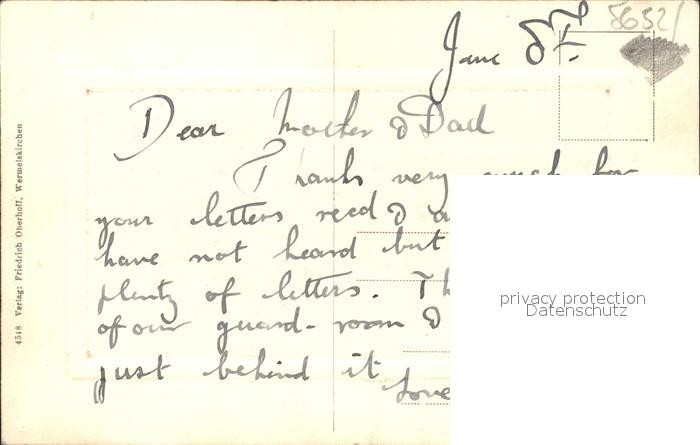 5652/
June 8th
Dear Mother & Dad
Thanks very much for
your letters recd &
have not heard but
plenty of letters. Th
of our guard-room &
just behind it
Love
4518 Verlag: Friedrich Oberhoff, Wermelskirchen
privacy protection
Datenschutz